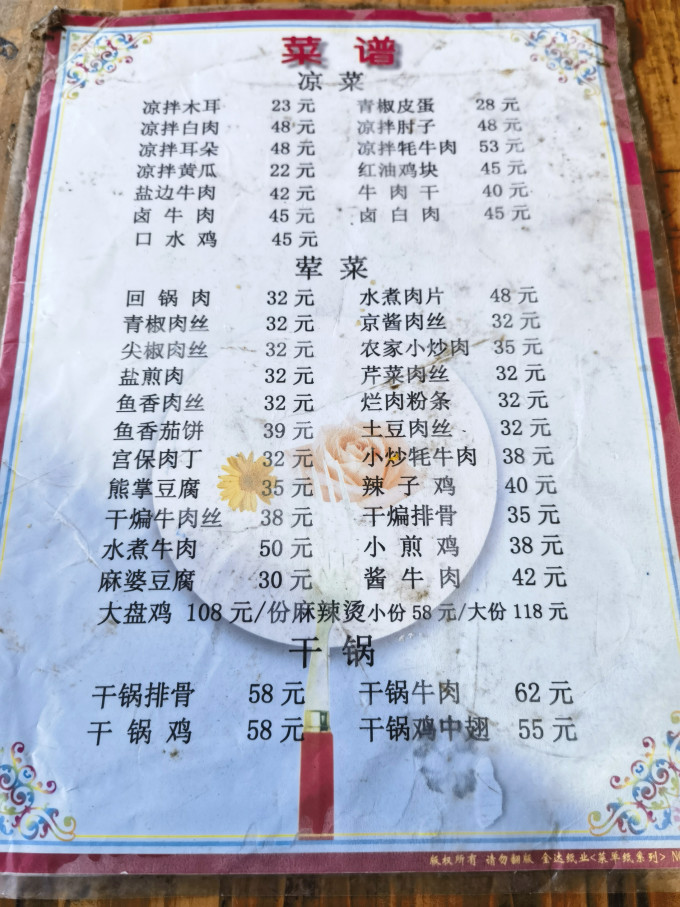 菜 谱
凉 菜
凉拌木耳 23 元 青椒皮蛋 28 元
凉拌白肉 48 元 凉拌肘子 48 元
凉拌耳朵 48 元 凉拌牦牛肉 53 元
凉拌黄瓜 22 元 红油鸡块 45 元
盐边牛肉 42 元 牛 肉 干 40 元
卤 牛 肉 45 元 卤 白 肉 45 元
口 水 鸡 45 元
荤 菜
回 锅 肉 32 元 水煮肉片 48 元
青椒肉丝 32 元 京酱肉丝 32 元
尖椒肉丝 32 元 农家小炒肉 35 元
盐煎肉 32 元 芹菜肉丝 32 元
鱼香肉丝 32 元 烂肉粉条 32 元
鱼香茄饼 39 元 土豆肉丝 32 元
宫保肉丁 32 元 小炒牦牛肉 38 元
熊掌豆腐 35 元 辣 子 鸡 40 元
干煸牛肉丝 38 元 干煸排骨 35 元
水煮牛肉 50 元 小 煎 鸡 38 元
麻婆豆腐 30 元 酱 牛 肉 42 元
大盘鸡 108 元/份麻辣烫小份 58 元/大份 118 元
干 锅
干锅排骨 58 元 干锅牛肉 62 元
干 锅 鸡 58 元 干锅鸡中翅 55 元
版权所有 请勿翻版 金达纸业<菜单纸系列>